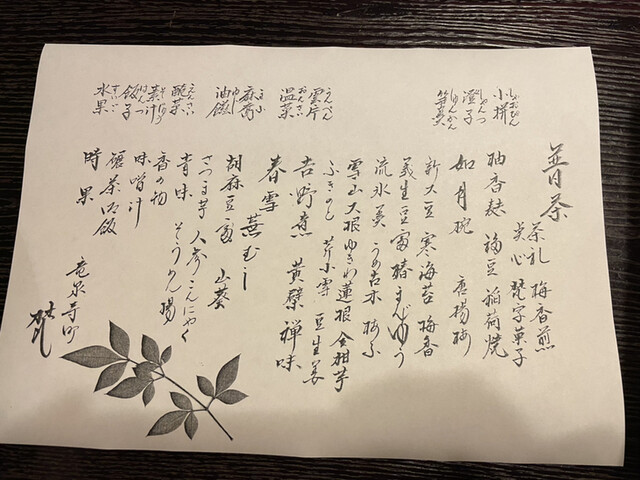 普茶
茶礼 梅香煎
点心 梵字菓子
小拼
柚香麸 福豆 稲荷焼
澄子
如月碗 唐揚梅
笋羹
新大豆 寒海苔 梅香
豆富 椿まんじゅう
流氷羹 うめ古木 梅ふ
雪山大根 ゆきわ蓮根 金柑芋
ふきのと 芹小雪 豆生姜
雲片
吉野煮 黄檗禅味
温菜
春雪蕪むし
麻腐
胡麻豆富 山葵
油餈
さつま芋 人参 こんにゃく
青味 そうめん 揚
醃菜
香の物
素汁
味噌汁
飯子
茶乃飯
水果
時果
竜泉寺町
梵